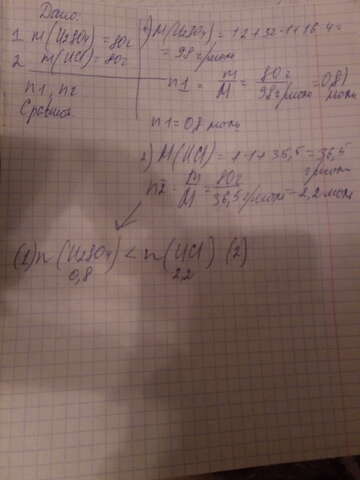 Дано:
1. m(H2SO4) = 80г
2 m(HCl) = 80г
n1, n2
Сравнить
1) M(H2SO4) = 1·2+32·1+16·4=
= 98 г/моль
n1 = m/M = 80г/98г/моль = 0,8
моль
n1 = 0,8 моль
2) M(HCl) = 1·1+35,5 = 36,5
г/моль
n2 = m/M = 80г/36,5г/моль = 2,2 моль
(1) n(H2SO4) < n(HCl) (2)
0,8 2,2